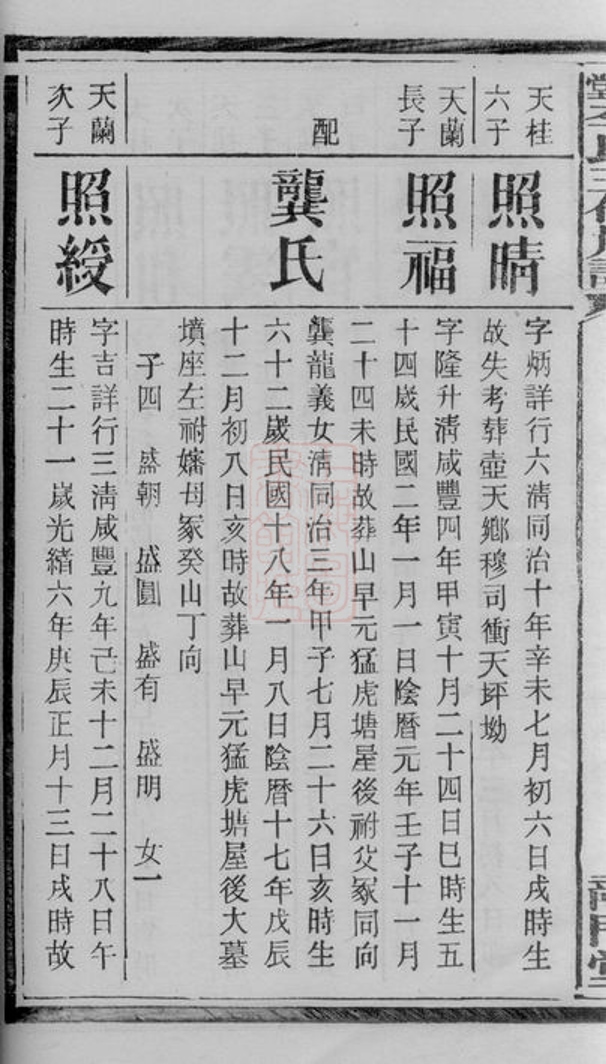 天桂
六子
照晴
字炳詳行六淸同治十年辛未七月初六日戌時生
故失考葬壺天鄉穆司衝天坪坳
天蘭
長子
照福
字隆升淸咸豐四年甲寅十月二十四日巳時生五
十四歲民國二年一月一日陰曆元年壬子十一月
二十四未時故葬山早元猛虎塘屋後祔父冢同向
配
龔氏
龔龍義女淸同治三年甲子七月二十六日亥時生
六十二歲民國十八年一月八日陰曆十七年戊辰
十二月初八日亥時故葬山早元猛虎塘屋後大墓
墳座左祔嬸母冢癸山丁向
子四 盛朝 盛圓 盛有 盛明 女一
天蘭
次子
照綬
字吉詳行三淸咸豐九年己未十二月二十八日午
時生二十一歲光緖六年庚辰正月十三日戌時故